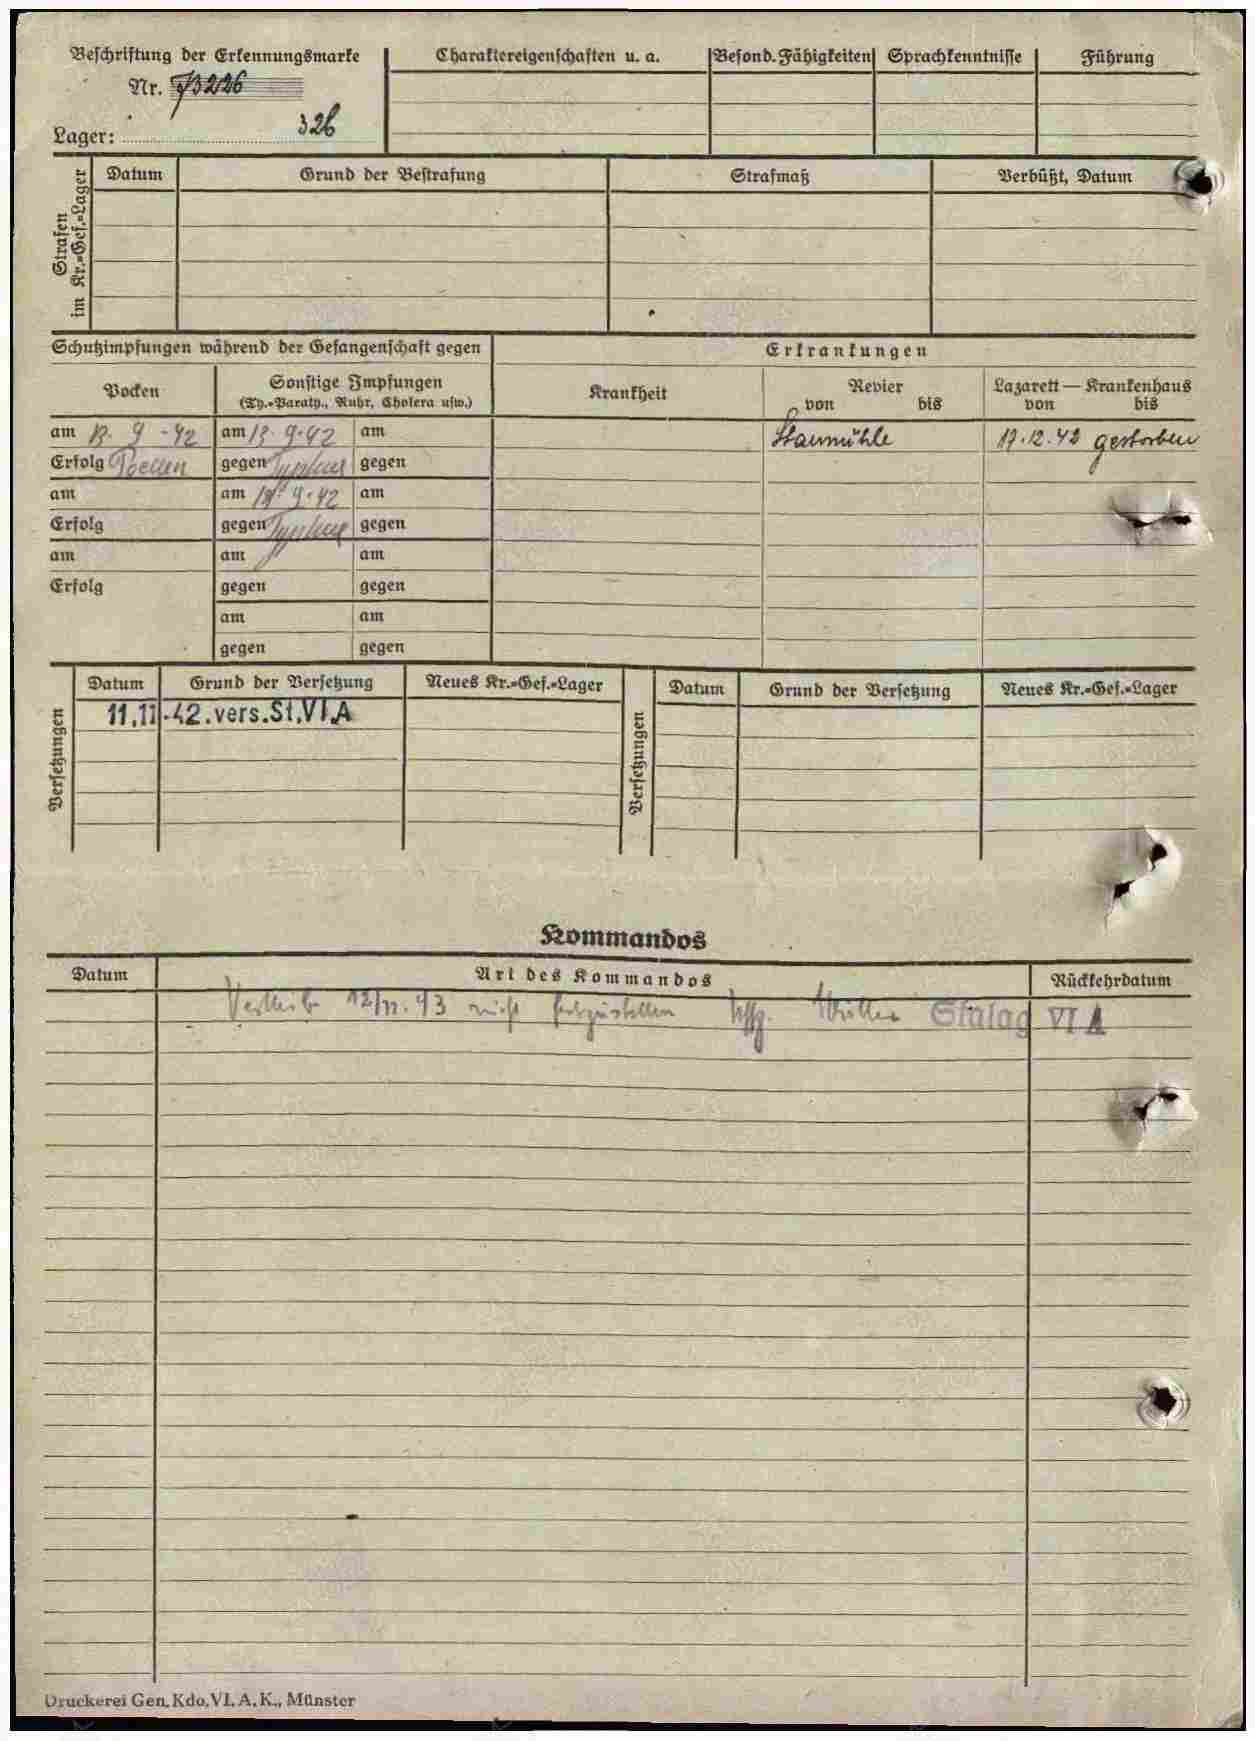 Beschriftung der Erkennungsmarke
Nr. 73226
Lager: 326
Charaktereigenschaften u. a.
Besond. Fähigkeiten
Sprachkenntnisse
Führung
Strafen im Kr.=Gef.=Lager
Datum
Grund der Bestrafung
Strafmaß
Verbüßt, Datum
Schutzimpfungen während der Gefangenschaft gegen
Erkrankungen
Pocken
Sonstige Impfungen
(Ty.=Paraty., Ruhr, Cholera usw.)
Krankheit
Revier
von bis
Lazarett — Krankenhaus
von bis
am 13. 9 - 42 am 13. 9. 42 am
Staumühle 17. 12. 42 gestorben
Erfolg Pocken gegen Typhus gegen
am am 9. 42 am
Erfolg gegen Typhus gegen
am am am
Erfolg gegen gegen
am am
gegen gegen
Versetzungen
Datum Grund der Versetzung Neues Kr.=Gef.=Lager
11.11.42.vers.St.VI.A
Versetzungen
Datum Grund der Versetzung Neues Kr.=Gef.=Lager
Kommandos
Datum Art des Kommandos Rückkehrdatum
Verbleib 12/11. 43 nicht festzustellen Stalag VI A
Druckerei Gen. Kdo. VI. A. K., Münster